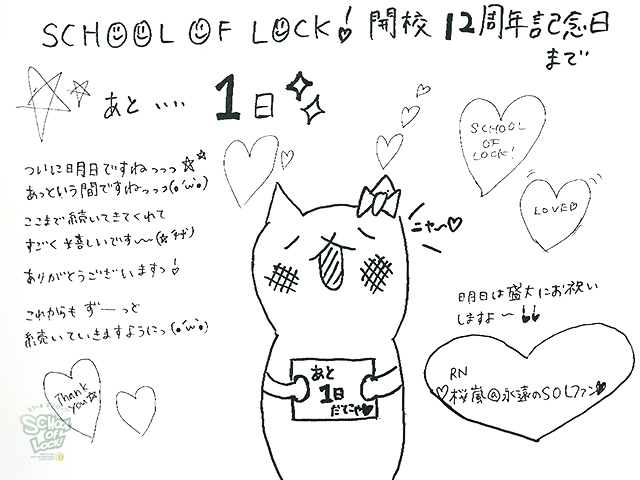 SCHOOL OF LOCK! 開校 12周年記念日
まで
あと .... 1日
ついに明日ですねっっっ☆☆
あっという間ですねっっっ(｡･ω･｡)
ここまで続いてきてくれて
すごく嬉しいです〜
ありがとうございますっ!
これからも ずーっと
続いていきますようにっ(｡･ω･｡)
Thank
you☆
SCHOOL
OF
LOCK!
SCHOOL
OF
LOCK!
LOVE♡
ニャ〜♡
あと
1日
だてにゃ♥
明日は盛大にお祝い
しますよ〜!!
RN
♡桜嵐@永遠のSOLファン♥